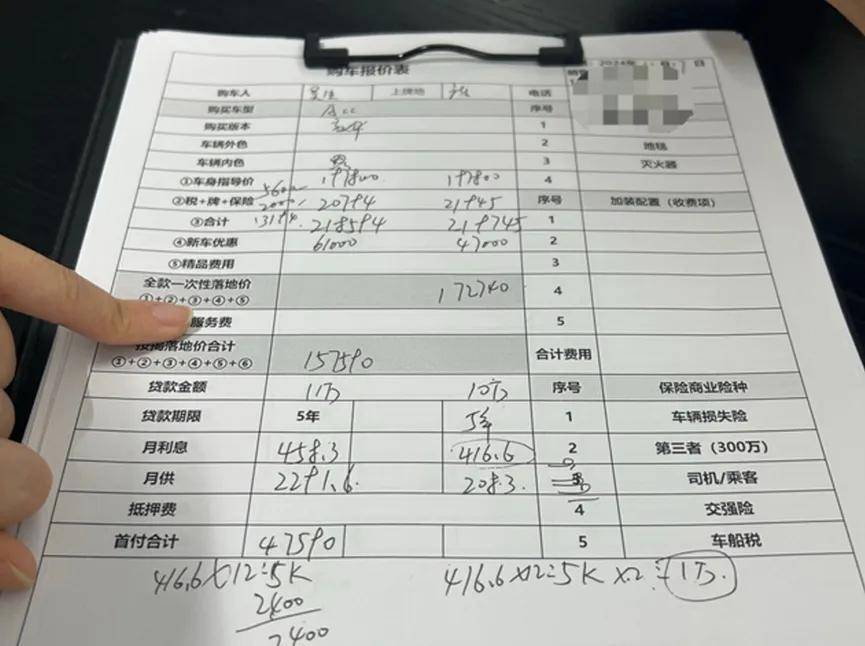 购车报价表
2024年 1 7 日
购车人 上牌地 电话
购买车型 Acc 序号
购买版本 豪华 1
车辆外色 2 地毯
车辆内色 黑 3 灭火器
①车身指导价 197800 197800 4
②税+牌+保险 5600 2000 13194 20794 21945 序号 加装配置（收费项）
③合计 218594 219745 1
④新车优惠 61000 47000 2
⑤精品费用 3
全款一次性落地价 172740 4
①+②+③+④+⑤
服务费 5
按揭落地价合计 157590 合计费用
①+②+③+④+⑤+⑥
贷款金额 11万 10万 序号 保险商业险种
贷款期限 5年 5年 1 车辆损失险
月利息 458.3 416.6 2 第三者（300万）
月供 2291.6 208.3 3 司机/乘客
抵押费 4 交强险
首付合计 47590 5 车船税
416.6×12=5K 416.6×12=5K×2=1万
2400
7400